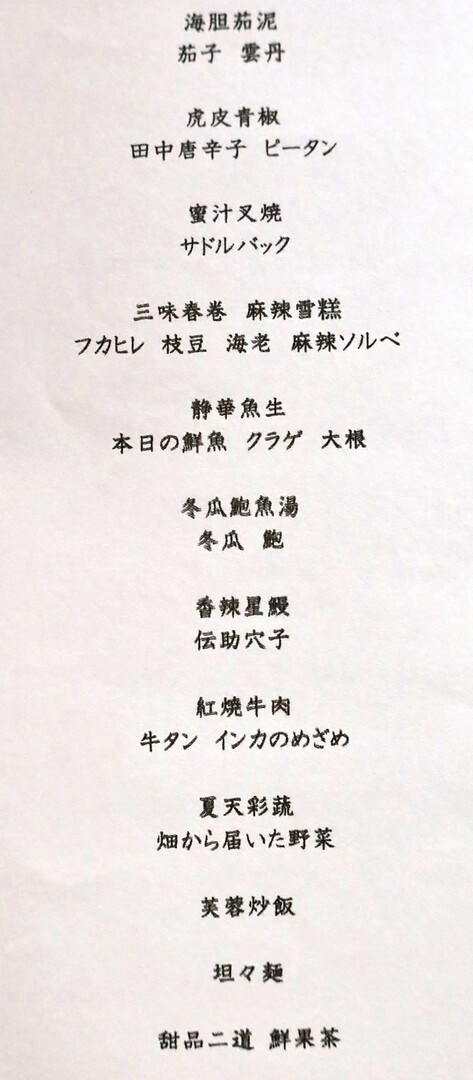 海胆茄泥
茄子 雲丹
虎皮青椒
田中唐辛子 ピータン
蜜汁叉焼
サドルバック
三味春巻 麻辣雪糕
フカヒレ 枝豆 海老 麻辣ソルベ
静華魚生
本日の鮮魚 クラゲ 大根
冬瓜鮑魚湯
冬瓜 鮑
香辣星鰻
伝助穴子
紅焼牛肉
牛タン インカのめざめ
夏天彩蔬
畑から届いた野菜
芙蓉炒飯
坦々麺
甜品二道 鮮果茶